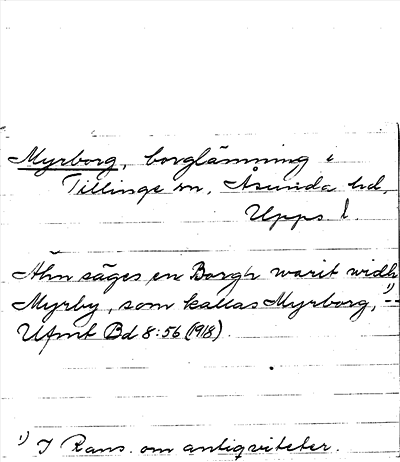 Myrborg, borglämning i
Tillinge sn, Åsunda hd,
Upps l.
Ähn säges en Borgh warit widh
Myrby, som kallas Myrborg, ¹) --
Ufmt Bd 8:56 (1918).
¹) I Rans. om antiqviteter.